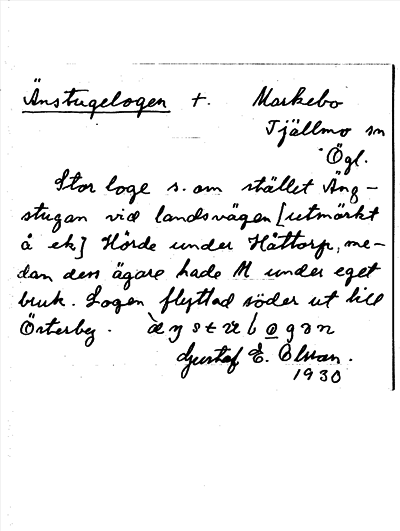 Änstugelogen +. Markebo
Tjällmo sn
Ögl.
Stor loge s. om stället Äng-
stugan vid landsvägen [utmärkt
å ek] Hörde under Håttorp, me-
dan dess ägare hade M under eget
bruk. Logen flyttad söder ut till
Österby.
Gustaf E. Olsson.
1930